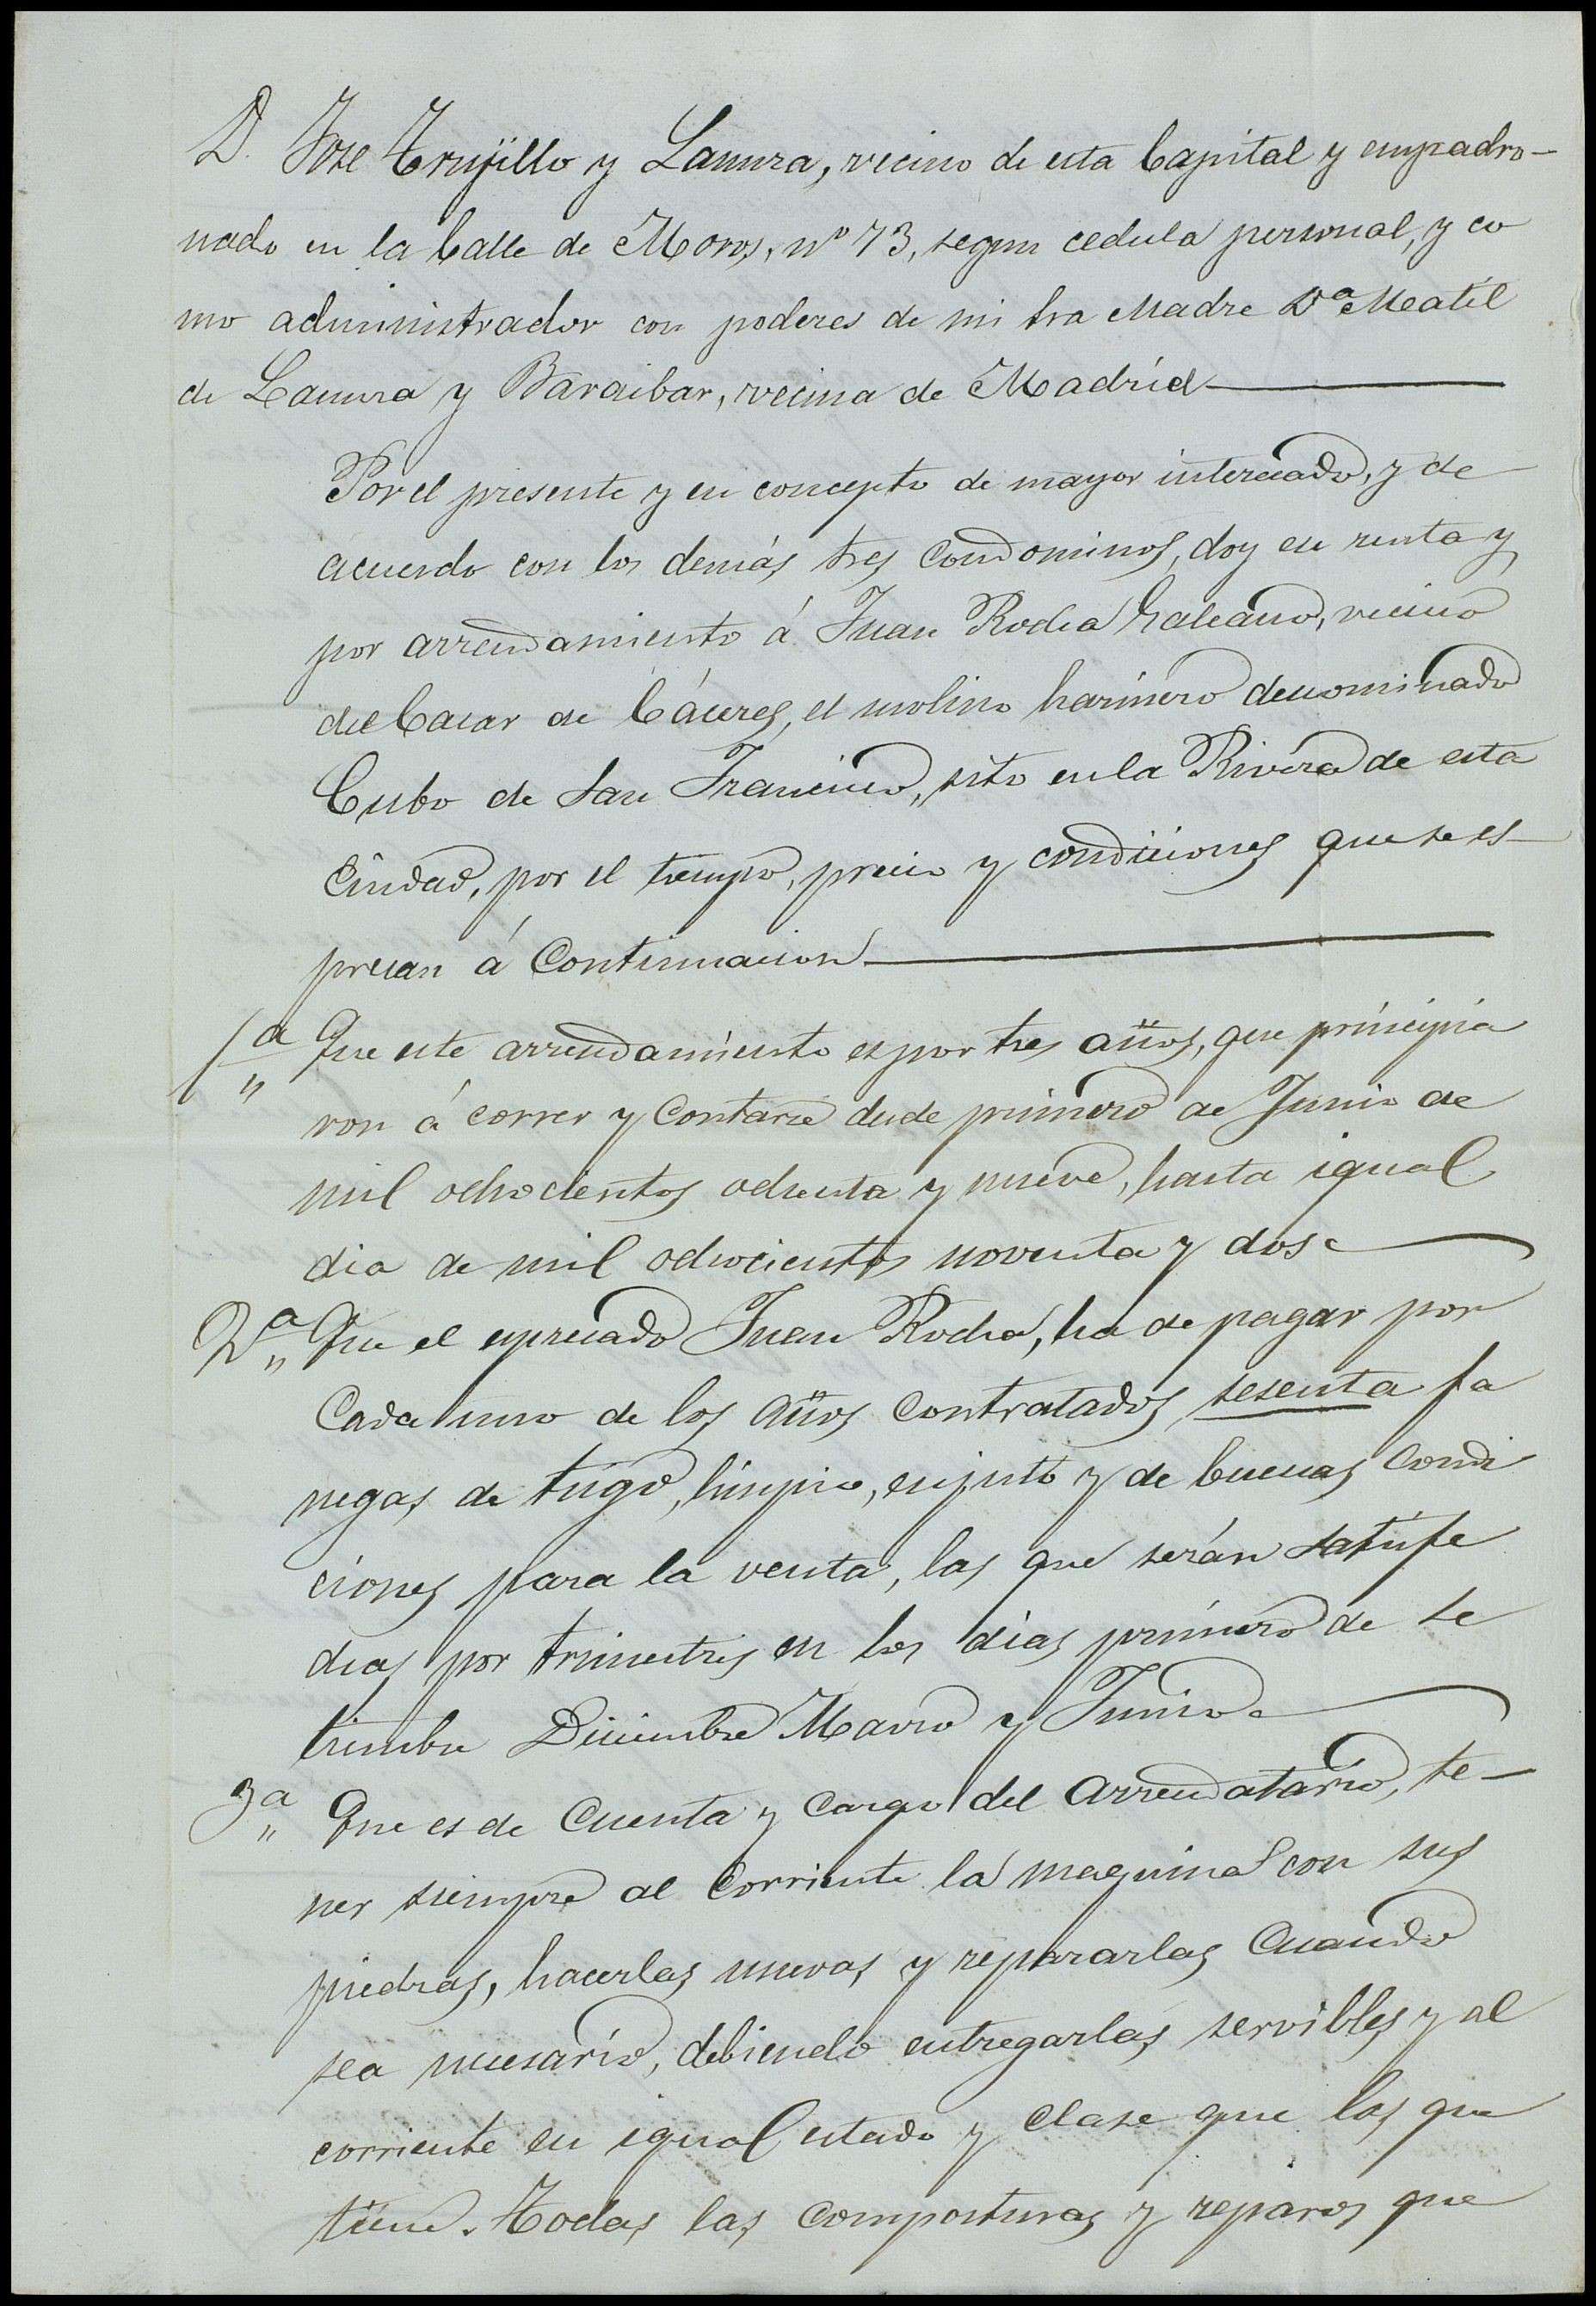 D. Jose Trujillo y Lanuza, vecino de esta Capital y empadro-
nado en la Calle de Moros, nº 73, segun cedula personal, y co
mo administrador con poderes de mi Sra Madre Dª Matil
de Lanuza y Baraibar, vecina de Madrid
Por el presente y en concepto de mayor interesado, y de
acuerdo con los demás tres condominos, doy en renta y
por arrendamiento á Juan Rocha Galeano, vecino
del Casar de Cáceres, el molino harinero denominado
Cubo de San Francisco, sito en la Rivera de esta
Ciudad, por el tiempo, precio y condiciones que se es-
presan á Continuacion
1ª Que este arrendamiento es por tres años, que principia
ron á correr y Contarse desde primero de Junio de
mil ochocientos ochenta y nueve, hasta igual
dia de mil ochocientos noventa y dos
2ª Que el espresado Juan Rocha, ha de pagar por
Cada uno de los años Contratados sesenta fa
negas de trigo, limpio, enjuto y de buenas Condi
ciones para la venta, las que serán satisfe
chas por trimestres en los dias primero de Se
tiembre Diciembre Marzo y Junio
3ª Que es de Cuenta y Cargo del Arrendatario, te-
ner siempre al Corriente la maquina con sus
piedras, hacerlas nuevas y repararlas Cuando
sea necesario, debiendo entregarlas servibles y al
corriente en igual estado y clase que las que
tiene. Todas las Composturas y reparos que